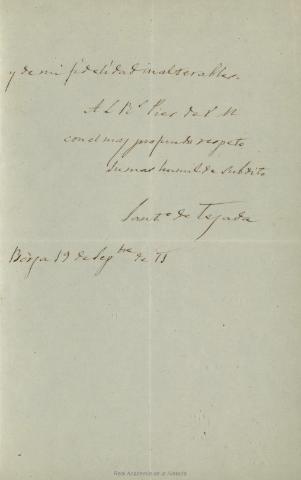 y de mi fidelidad inalterables.
A L R.s Pies de V. M
con el mas profundo respeto
su mas humilde subdito
Sant.o de Tejada
Borja 19 de Sep.bre de 75
Real Academia de la Historia